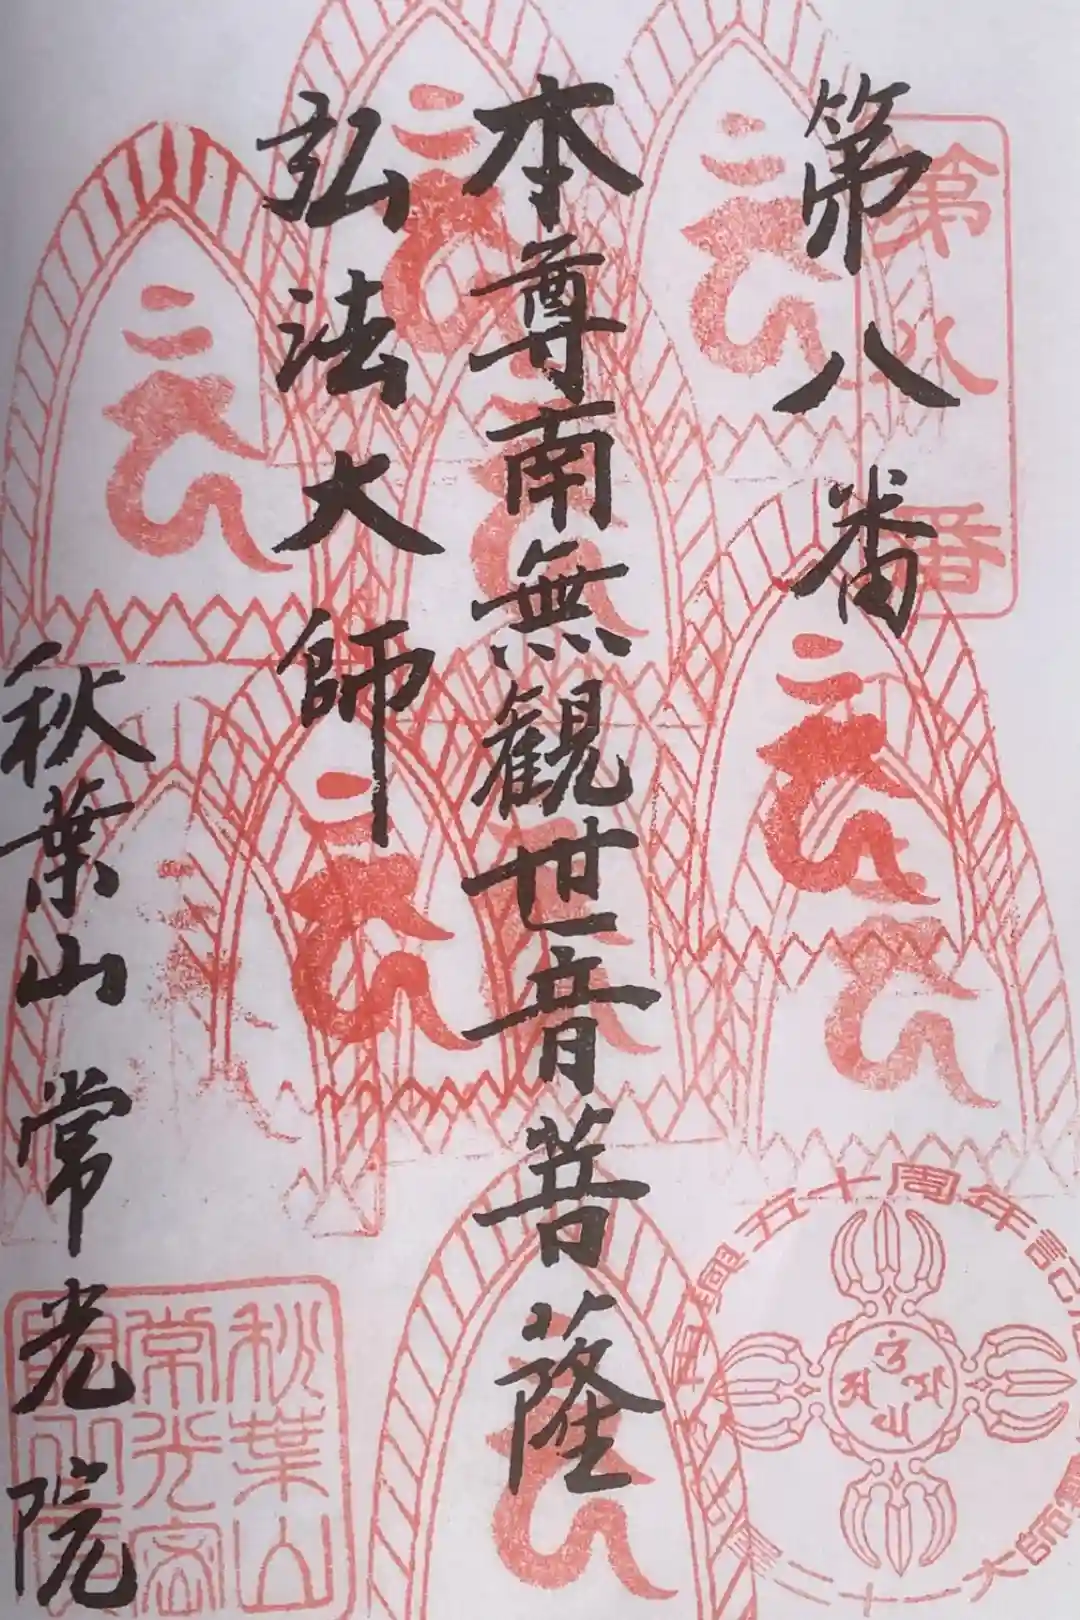 第八番
第八番
本尊南無観世音菩薩
弘法大師
秋葉山常光院
秋葉山
常光
五十周年記
大師
二十一